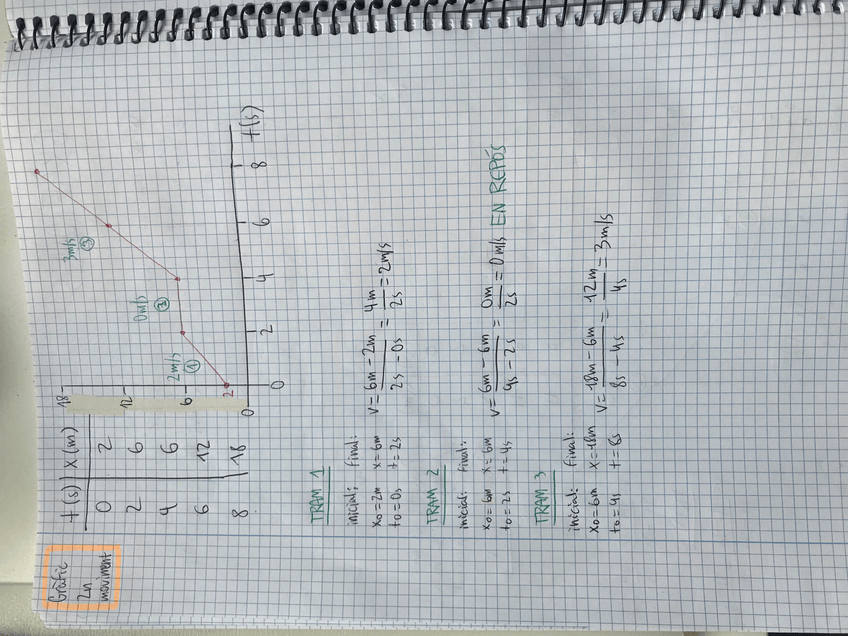 Gràfic
2n
moviment
t(s) | x(m)
0 2
2 6
4 6
6 12
8 18
18
12
6
2
0
0 2 4 6 8 t(s)
2m/s
①
0m/s
②
3m/s
③
TRAM 1
inicial: final:
x₀=2m x=6m
t₀=0s t=2s
v = 6m - 2m / 2s - 0s = 4m / 2s = 2m/s
TRAM 2
inicial: final:
x₀=6m x=6m
t₀=2s t=4s
v = 6m - 6m / 4s - 2s = 0m / 2s = 0m/s EN REPÒS
TRAM 3
inicial: final:
x₀=6m x=18m
t₀=4s t=8s
v = 18m - 6m / 8s - 4s = 12m / 4s = 3m/s